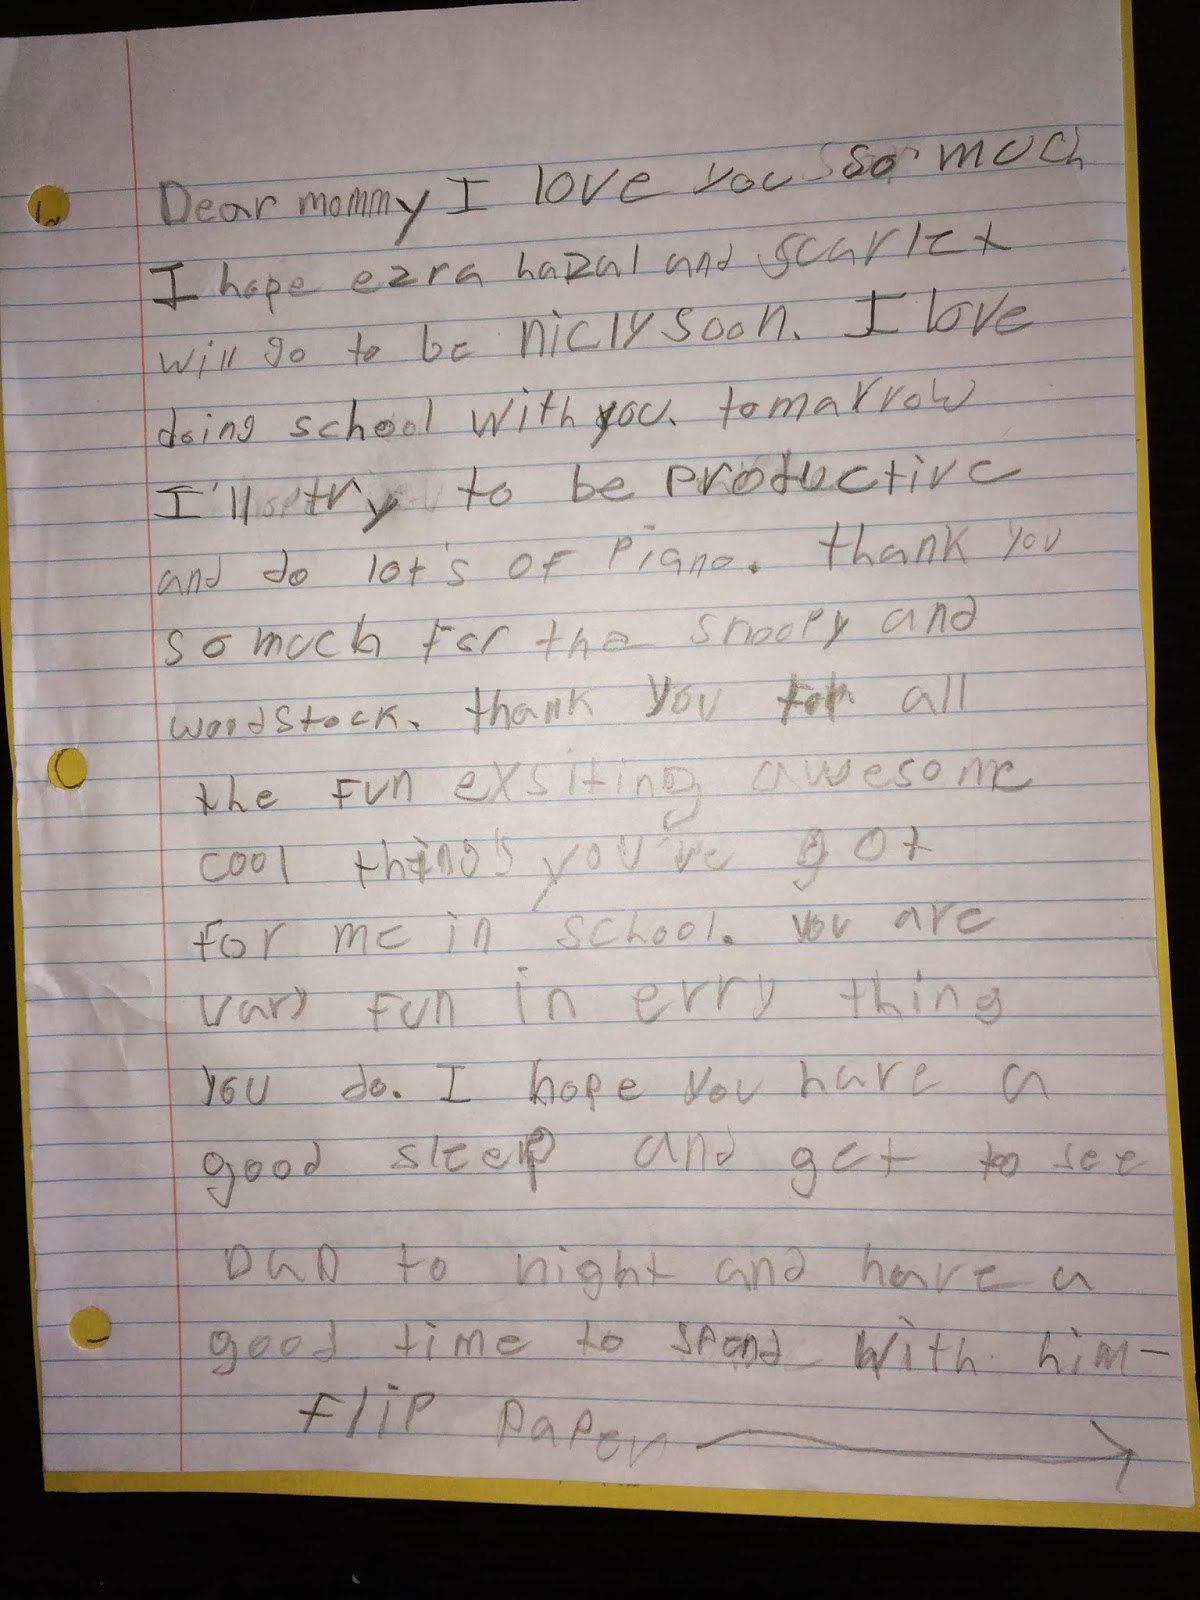 Dear mommy I love you so much
I hope ezra hazal and scarlet
will go to be nicly soon. I love
doing school with you. tomarrow
I'll try to be productive
and do lot's of piano. thank you
so much for the snoopy and
woodstock. thank you for all
the fun exsiting awesome
cool thing's you've got
for me in school. you are
vary fun in erry thing
you do. I hope you have a
good sleep and get to see
DaD to night and have a
good time to spend with him-
flip paper